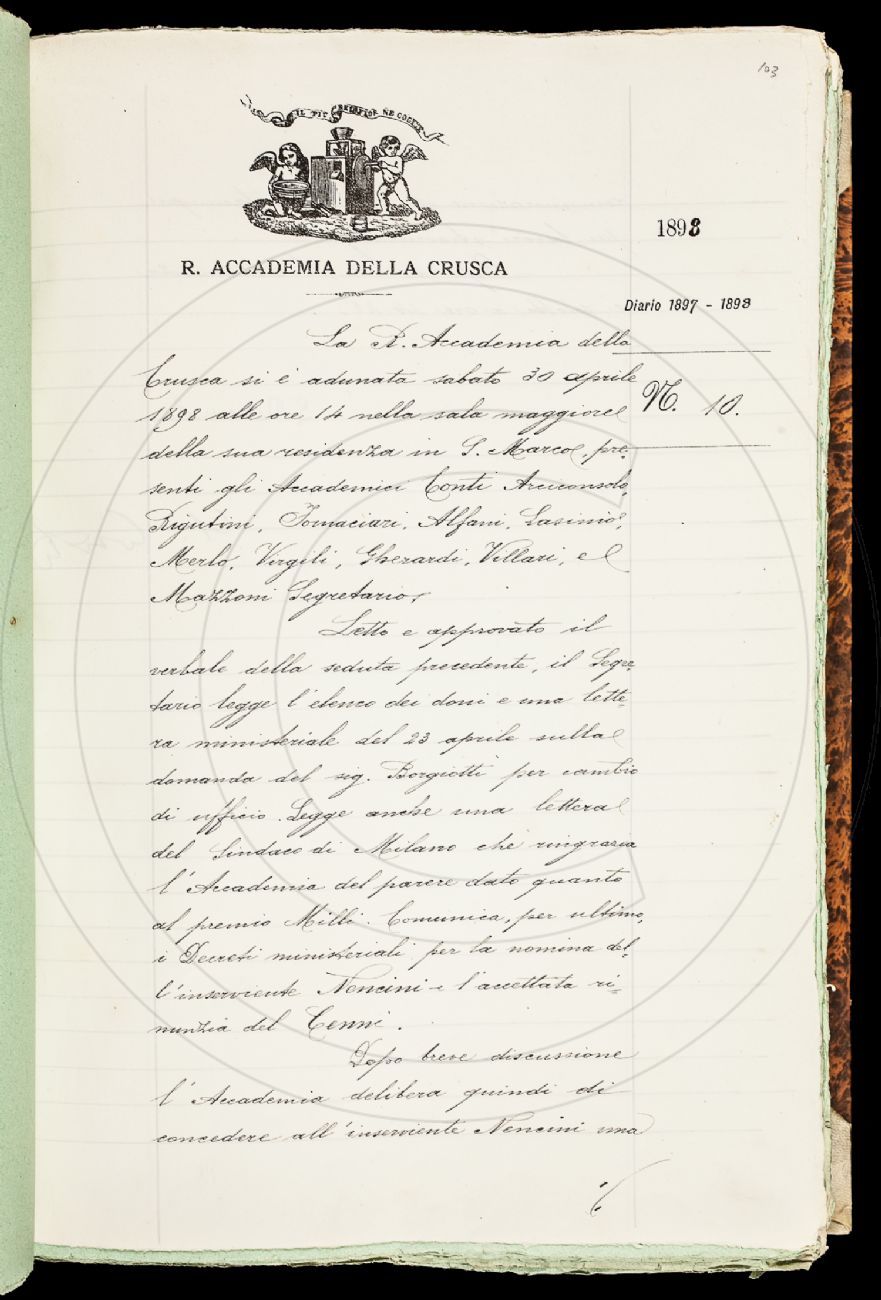 103
IL PIÙ BEL FIOR NE COGLIE
R. ACCADEMIA DELLA CRUSCA
1898
Diario 1897 - 1898
N. 10.
La R. Accademia della
Crusca si è adunata sabato 30 aprile
1898 alle ore 14 nella sala maggiore
della sua residenza in S. Marco, pre-
senti gli Accademici Conti Arciconsolo,
Rigutini, Tornaciari, Alfani, Lasinio,
Merlo, Virgili, Gherardi, Villari, e
Mazzoni Segretario.
Letto e approvato il
verbale della seduta precedente, il Segre-
tario legge l'elenco dei doni e una lette-
ra ministeriale del 23 aprile sulla
domanda del sig. Borgiotti per cambio
di ufficio. Legge anche una lettera
del Sindaco di Milano che ringrazia
l'Accademia del parere dato quanto
al premio Milli. Comunica, per ultimo,
i Decreti ministeriali per la nomina del-
l'inserviente Nencini e l'accettata ri-
nunzia del Cenni.
Dopo breve discussione
l'Accademia delibera quindi di
concedere all'inserviente Nencini una